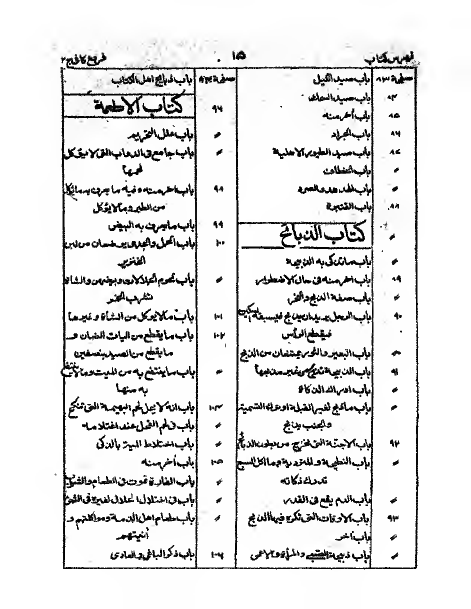 فهرس كتاب
١٥
فروع كافى ج ٢
صفحة ٨٣ باب صيد الليل
٨٤ باب صيد السمك
٨٥ باب آخر منه
٨٦ باب الجراد
٨٧ باب صيد الطيور الاهلية
باب الخطاف
باب الهدهد والصرد
٨٨ باب القنبرة
كتاب الذبائح
باب ما تذكى به الذبيحة
٨٩ باب آخر منه فى حال الاضطرار
باب صفة الذبح والنحر
٩٠ باب الرجل يريد ان يذبح فيسبقه السكين
فيقطع الرأس
باب البعير والثور يمتنعان من الذبح
٩١ باب الذبيحة تذبح من غير مذبحها
باب ادراك الذكاة
باب ما ذبح لغير القبلة او ترك التسمية
والجنب يذبح
٩٢ باب الاجنة التى تخرج من بطون الذبائح
باب النطيحة والمتردية وما اكل السبع
تدرك ذكاته
باب الدم يقع فى القدر
٩٣ باب الاوقات التى تكره فيها الذبح
باب آخر
باب ذبيحة الصبى والمرأة والاعمى
باب ذبائح اهل الكتاب
كتاب الاطعمة
٩٦
باب علل التحريم
باب جامع فى الدواب التى لا يؤكل
لحمها
٩٨ باب آخر منه وفيه ما يعرف به ما يؤكل
من الطير وما لا يؤكل
٩٩ باب ما يعرف به البيض
١٠٠ باب الحمل والجدى يرضعان من لبن
الخنزير
باب لحوم الجلالات وبيضهن والشاة
تشرب الخمر
١٠١ باب ما لا يؤكل من الشاة وغيرها
١٠٢ باب ما يقطع من اليات الضأن و
ما يقطع من الصيد بنصفين
باب ما ينتفع به من الميت وما لا ينتفع
به منها
١٠٤ باب انه لا يحل لحم البهيمة التى تنكح
باب فى لحم الفحل عند اغتلامه
باب اختلاط الميتة بالذكى
١٠٥ باب آخر منه
باب الفارة تموت فى الطعام والشراب
باب فى اختلاط الحلال لغيره فى الشئ
باب طعام اهل الذمة ومواكلتهم و
آنيتهم
١٠٦ باب ذكر الباغى والعادى